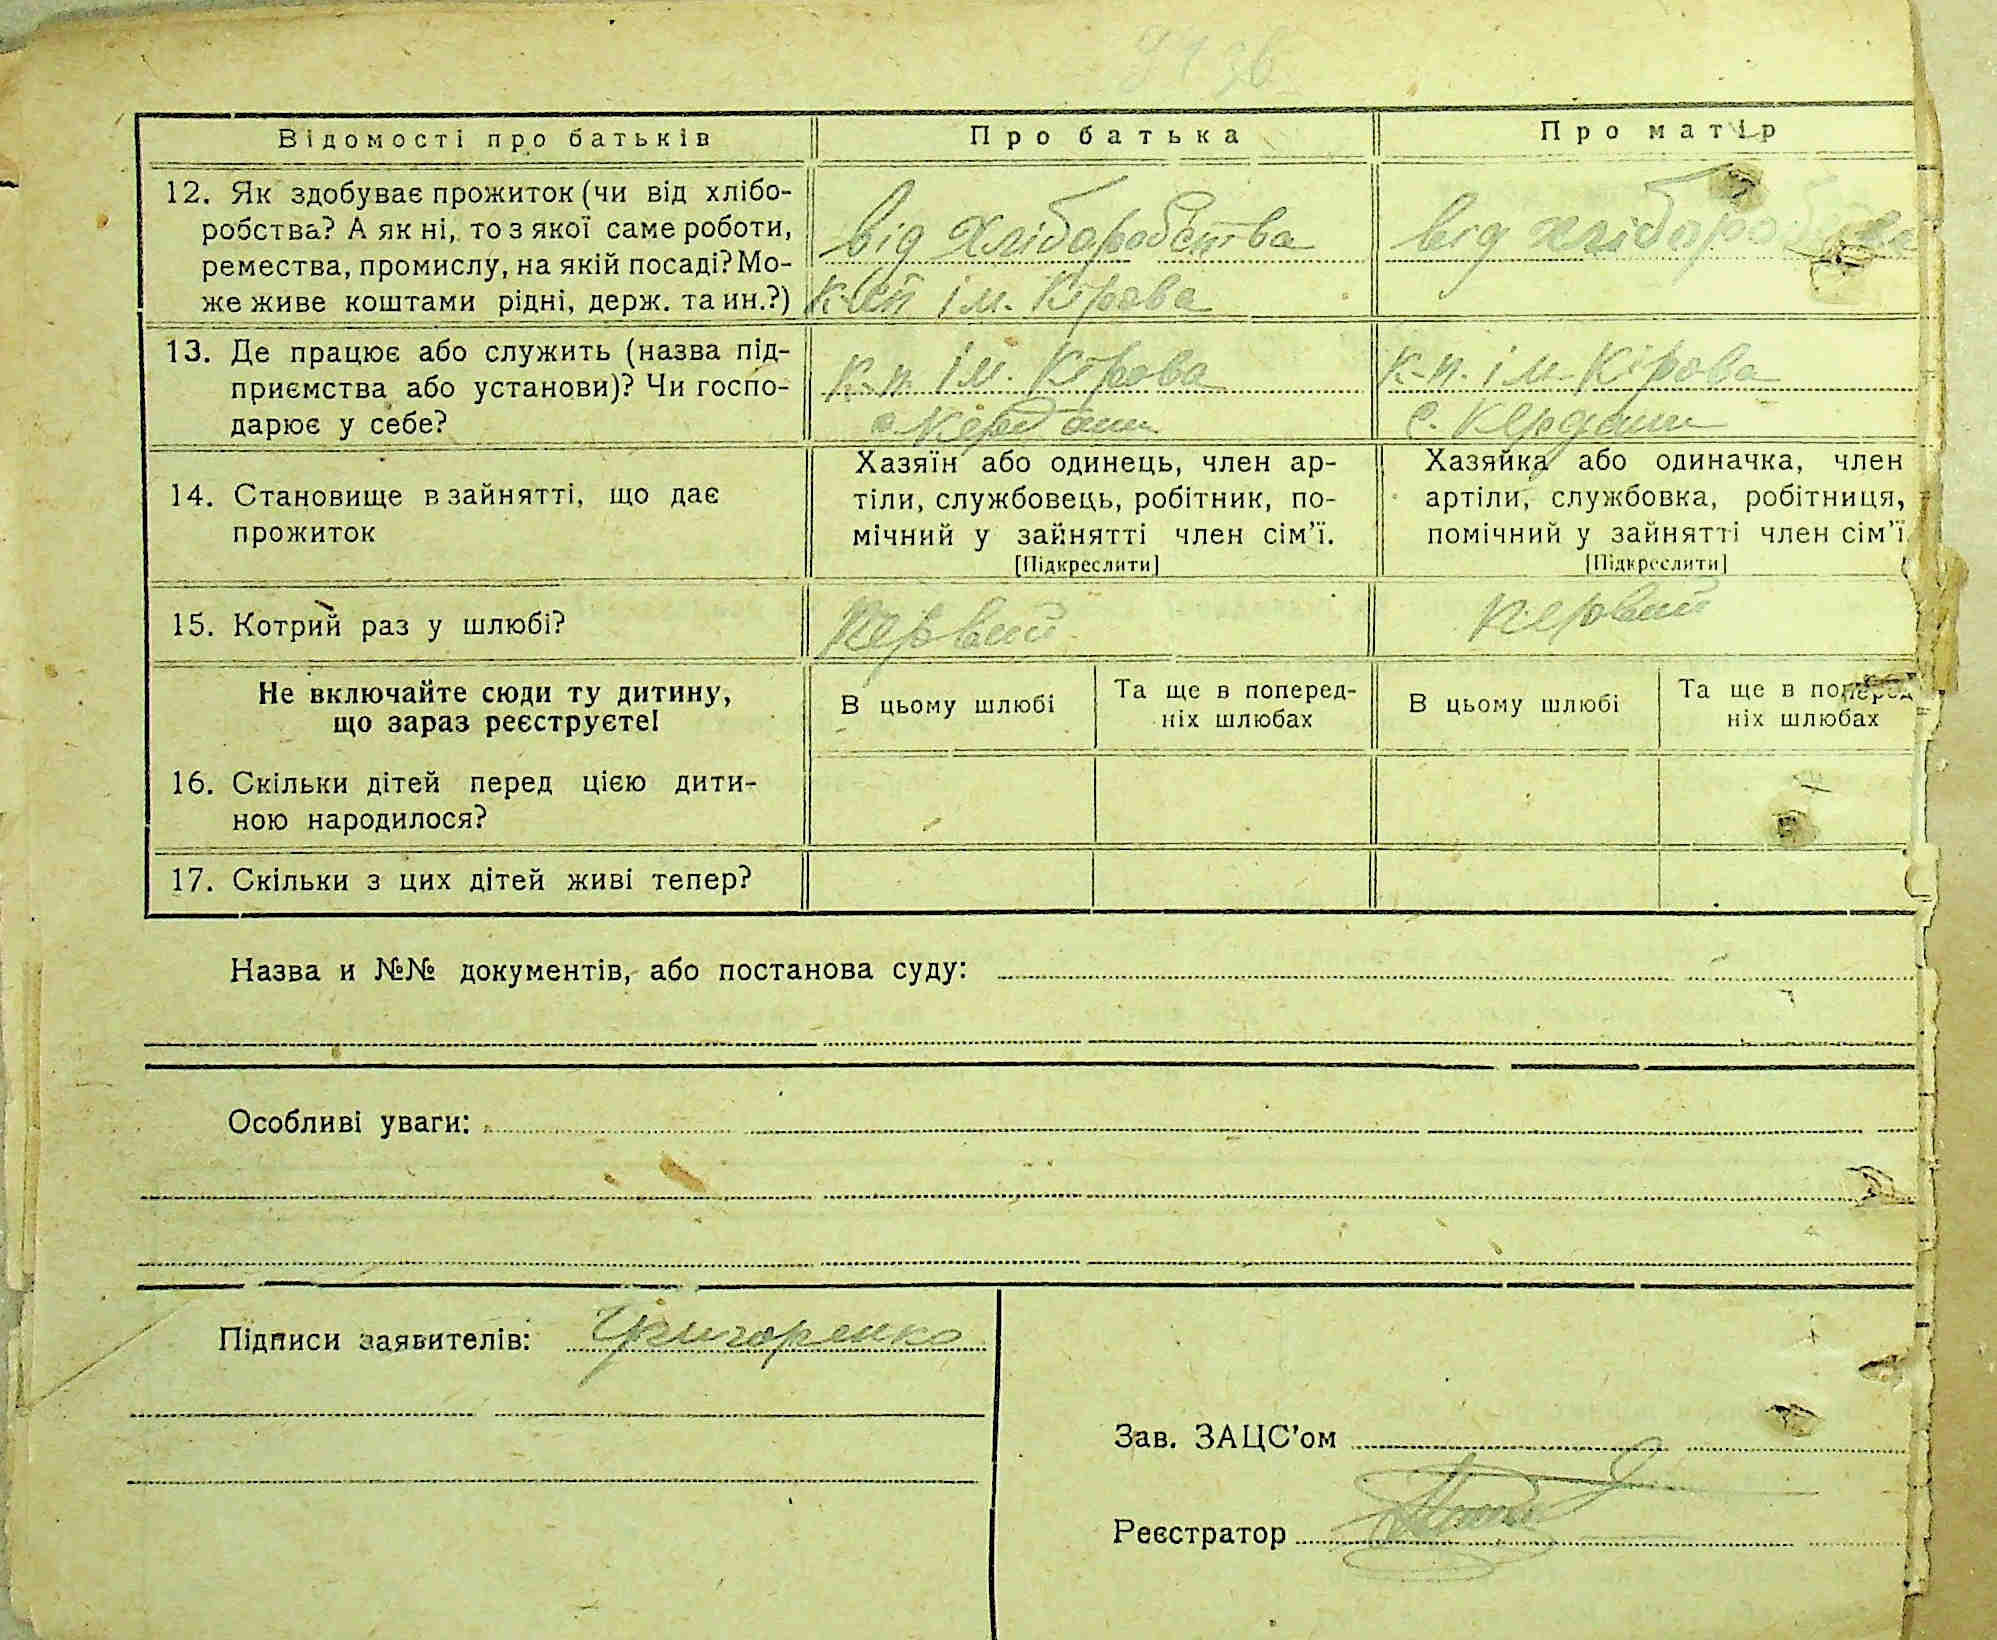 Відомості про батьків
Про батька
Про матір
12. Як здобуває прожиток (чи від хлібо-
робства? А як ні, то з якої саме роботи,
ремества, промислу, на якій посаді? Мо-
же живе коштами рідні, держ. та ин.?)
від хліборобства
ім. Кірова
від хліборобства
13. Де працює або служить (назва під-
приємства або установи)? Чи госпо-
дарює у себе?
к.п. ім. Кірова
с. Кердани
к.п. ім Кірова
с. Кердани
14. Становище в зайнятті, що дає
прожиток
Хазяїн або одинець, член ар-
тіли, службовець, робітник, по-
мічний у зайнятті член сім’ї.
[Підкреслити]
Хазяйка або одиначка, член
артіли, службовка, робітниця,
помічний у зайнятті член сім’ї
[Підкреслити]
15. Котрий раз у шлюбі?
Первий
Первий
Не включайте сюди ту дитину,
що зараз реєструєте!
В цьому шлюбі
Та ще в поперед-
ніх шлюбах
В цьому шлюбі
Та ще в поперед
ніх шлюбах
16. Скільки дітей перед цією дити-
ною народилося?
17. Скільки з цих дітей живі тепер?
Назва и №№ документів, або постанова суду:
Особливі уваги:
Підписи заявителів: Григоренко
Зав. ЗАЦС’ом
Реєстратор